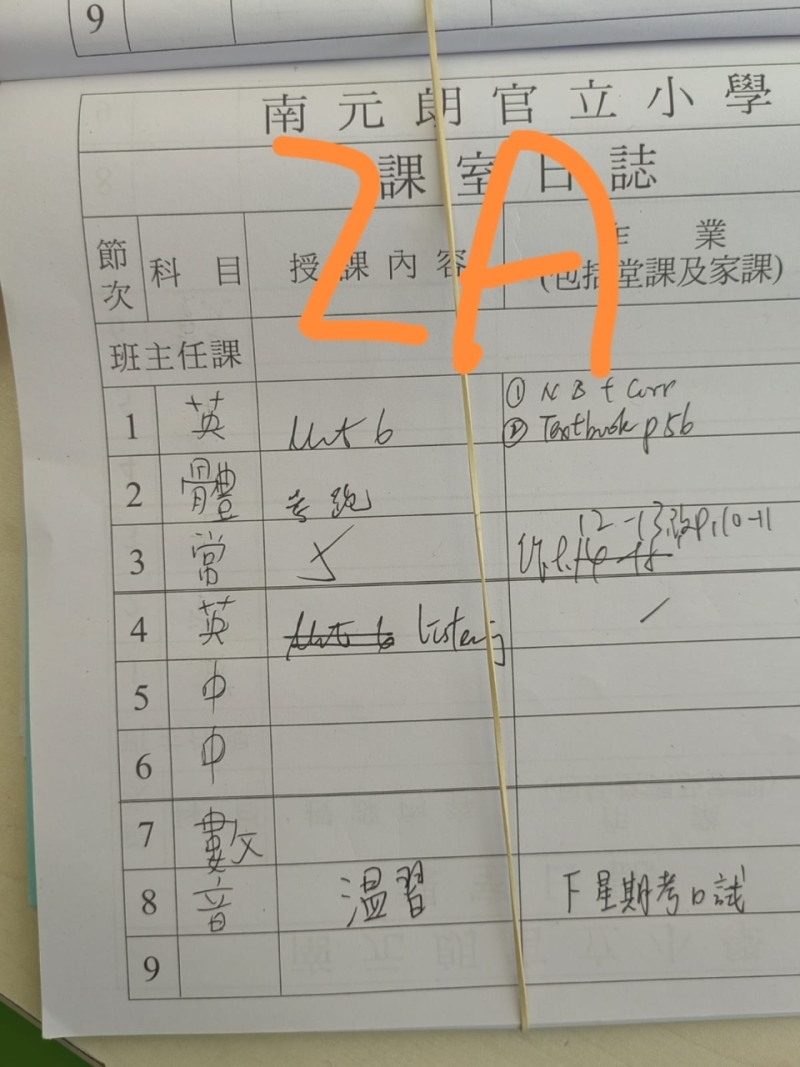 9
南元朗官立小學
課室日誌
2A
節次 科目 授課內容 作業
(包括堂課及家課)
班主任課
1 英 Unit 6 ① NB + Corr
② Textbook p56
2 體 考跑
3 常 12-13, 改p.10-11
4 英 Unit 6 listening
5 中
6 中
7 數
8 音 溫習 下星期考口試
9